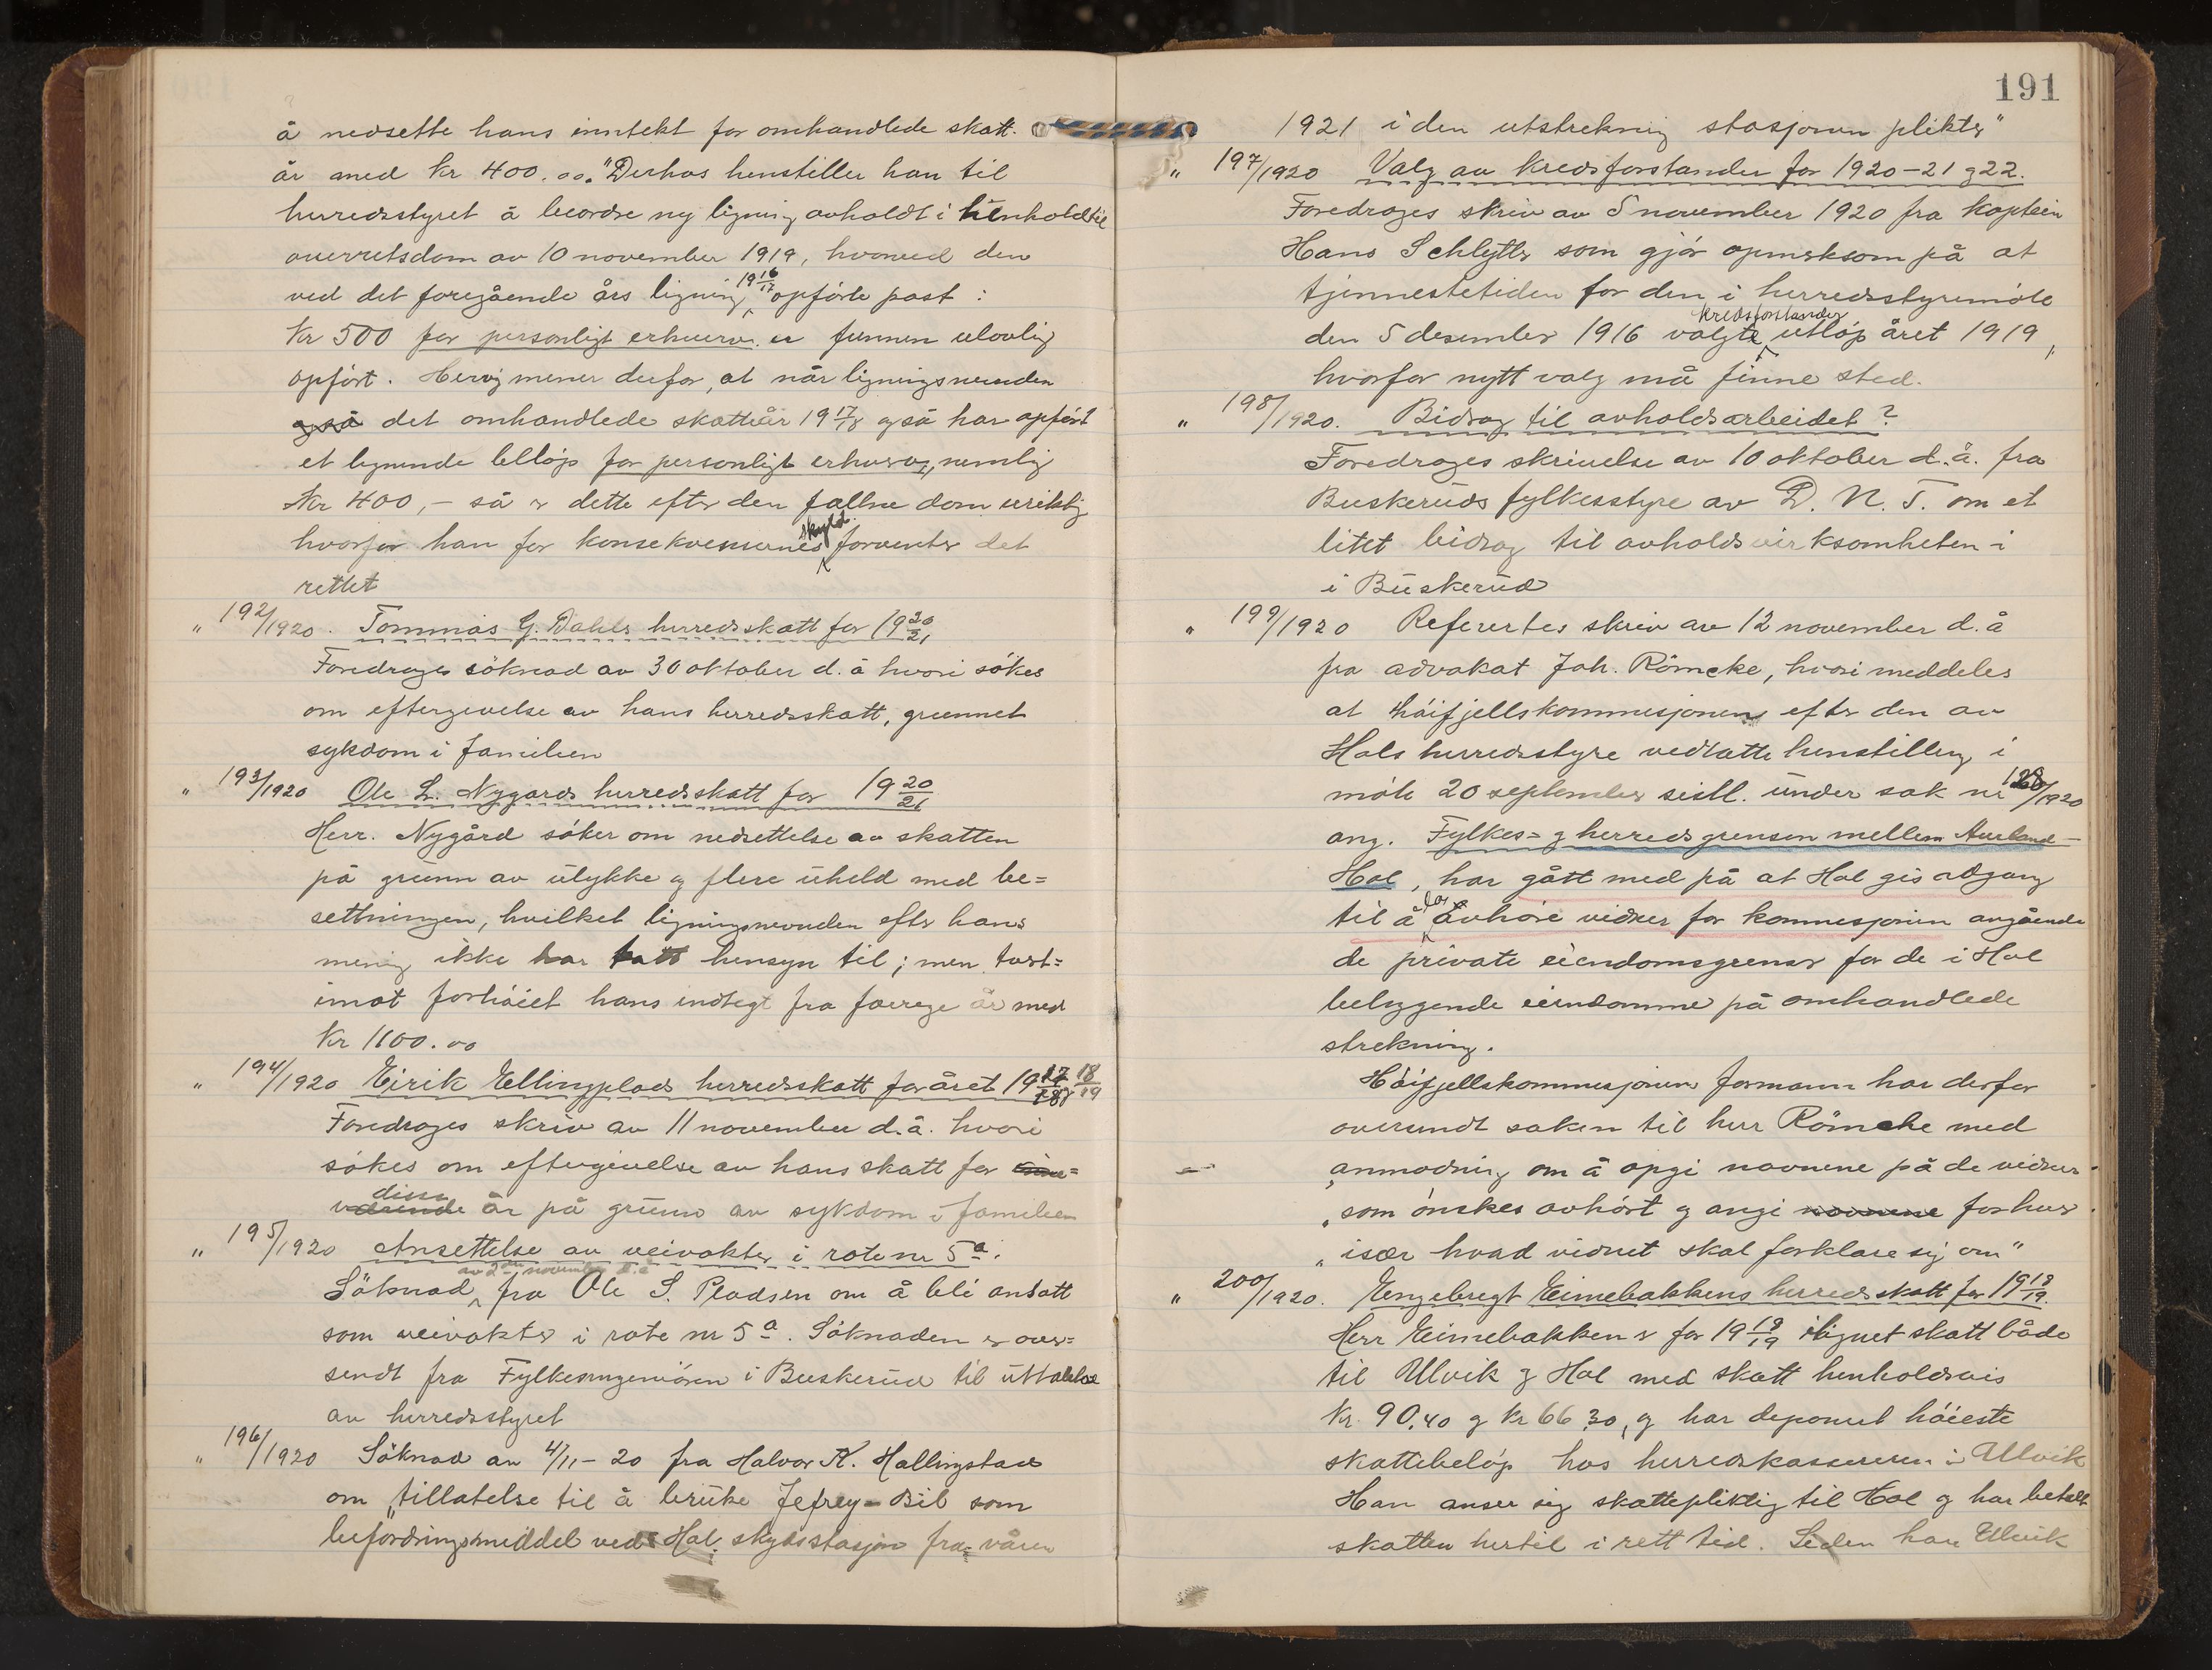 å nedsette hans inntekt for omhandlede skatt-
år med kr 400.oo." Derhos henstiller han til
herredsstyret å beordre ny ligning avholdt i henhold til
overretsdom av 10 november 1919, hvorved den
ved det foregående års ligning 19 16/17 opförte post :
Kr 500 for personligt erhverv er funnen ulovlig
opfört. Hervig mener derfor, at når ligningsnemnden
også det omhandlede skatteår 19 17/18 også har opfört
et lignende belöp for personligt erhverv, nemlig
Kr 400,- så er dette efter den fallne dom uriktig
hvorfor han for konsekvensernes skyld forventer det
rettet
" 192/1920. Tommas G. Dahls herredsskatt for 19 20/21
Foredroges söknad av 30 oktober d. å hvori sökes
om eftergivelse av hans herredsskatt, grunnet
sykdom i familien
" 193/1920 Ole L. Nygards herredsskatt for 19 20/21
Herr. Nygård söker om nedsettelse av skatten
på grunn av ulykke og flere uheld med be=
settningen, hvilket ligningsnemnden efter hans
mening ikke har tatt hensyn til; men tvert=
imot forhöiet hans indtegt fra forrige år med
Kr 1100.oo
" 194/1920 Eirik Ellingplads herredsskatt for året 19 17/18 18/19
Foredroges skriv av 11 november d.å. hvori
sökes om eftergivelse av hans skatt for inne=
værende disse år på grunn av sykdom i familien
" 195/1920 Ansettelse av veivokter i rote nr 5a.
Söknad av 2den november d.å fra Ole S. Pladsen om å bli ansatt
som veivokter i rote nr 5a. Söknaden er over=
sendt fra Fylkesingeniören i Buskerud til uttalelse
av herredsstyret
" 196/1920 Söknad av 4/11-20 fra Halvor K. Hallingstad
om "tillatelse til å bruke Jefrey-Bil som
befordringsmiddel ved Hol skydsstasjon fra våren
191
1921 i den utstrekning stasjonen plikter"
" 197/1920 Valg av kredsforstander for 1920-21 og 22.
Foredroges skriv av 5 november 1920 fra kaptein
Hans Schlytter som gjör opmerksom på at
tjennestetiden for den i herredsstyremöte
den 5 desember 1916 valgte kredsforstander utlöp året 1919,
hvorfor nytt valg må finne sted.
" 198/1920. Bidrag til avholdsarbeidet?
Foredroges skrivelse av 10 oktober d.å. fra
Buskeruds fylkesstyre av D. N. T. om et
litet bidrag til avholdsvirksomheten i
i Buskerud
" 199/1920 Referertes skriv av 12 november d.å
fra advokat Joh. Römcke, hvori meddeles
at höifjellskommisjonen efter den av
Hols herredsstyre vedtatte henstilling i
möte 20 september sistl. under sak nr 128/1920
ang. Fylkes= og herredsgrensen mellem Aurland-
Hol, har gått med på at Hol gis adgang
til å la avhöre vidner for kommisjonen angående
de private eiendomsgrenser for de i Hol
beliggende eiendomme på omhandlede
strekning.
Höifjellskommisjonens formann har derfor
oversendt saken til herr Römcke med
"anmodning om å opgi navnene på de vidner
"som önskes avhört og angi navnene for hver
"især hvad vidnet skal forklare sig om"
" 200/1920. Engebregt Eimebakkens herredsskatt for 19 18/19.
Herr Eimebakken er for 19 18/19 ilignet skatt både
til Ulvik og Hol med skatt henholdsvis
Kr. 90.40 og kr 66.30, og har deponert höieste
skattebelöp hos herredskassereren i Ulvik
Han anser sig skattepliktig til Hol og har betalt
skatten hertil i rett tid. Siden han Ulvik